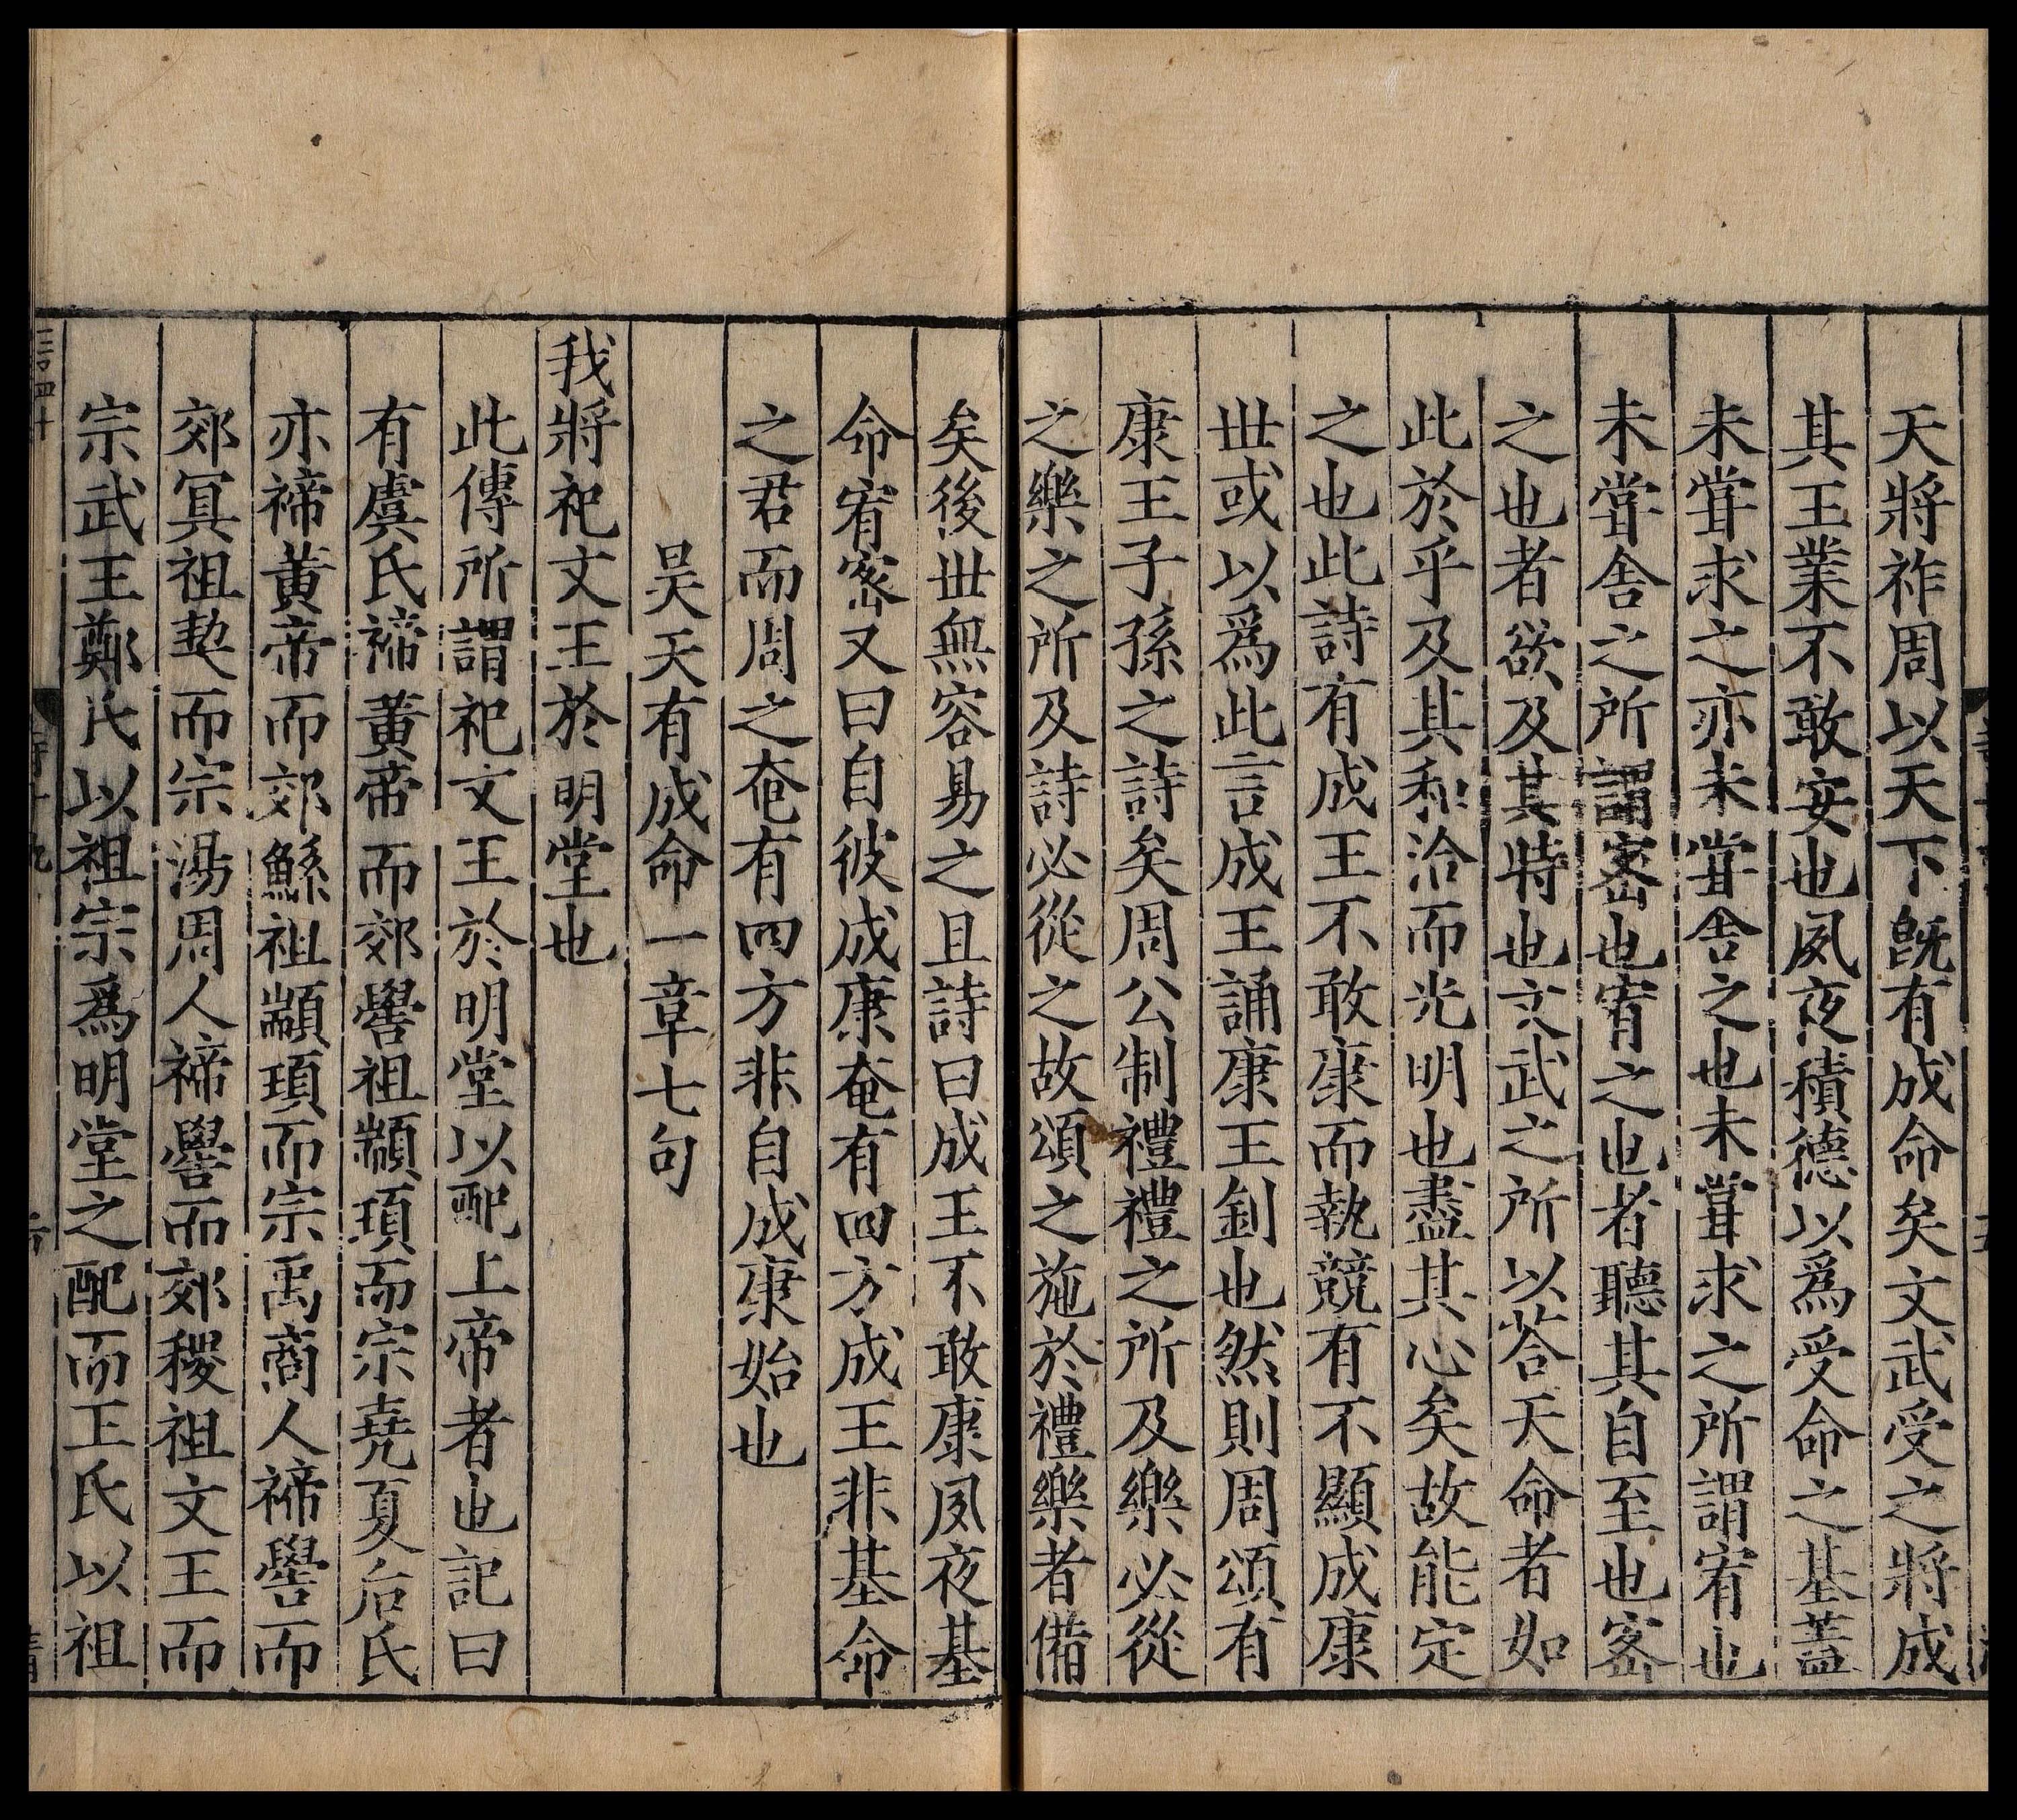 天將祚周以天下旣有成命矣文武受之將成
其王業不敢安也夙夜積德以爲受命之基蓋
未甞求之亦未甞舍之也未甞求之所謂宥也
未甞舍之所謂宻也宥之也者聽其自至也宻
之也者欲及其時也文武之所以荅天命者如
此於乎及其和洽而光明也盡其心矣故能定
之也此詩有成王不敢康而執競有不顯成康
世或以爲此言成王誦康王釗也然則周頌有
康王子孫之詩矣周公制禮禮之所及樂必從
之樂之所及詩必從之故頌之施於禮樂者備
矣後世無容易之且詩曰成王不敢康夙夜基
命宥宻又曰自彼成康奄有四方成王非基命
之君而周之奄有四方非自成康始也
昊天有成命一章七句
我將祀文王於明堂也
此傳所謂祀文王於明堂以配上帝者也記曰
有虞氏禘黃帝而郊嚳祖顓頊而宗堯夏后氏
亦禘黃帝而郊鯀祖顓頊而宗禹商人禘嚳而
郊冥祖契而宗湯周人禘嚳而郊稷祖文王而
宗武王鄭氏以祖宗爲明堂之配而王氏以祖